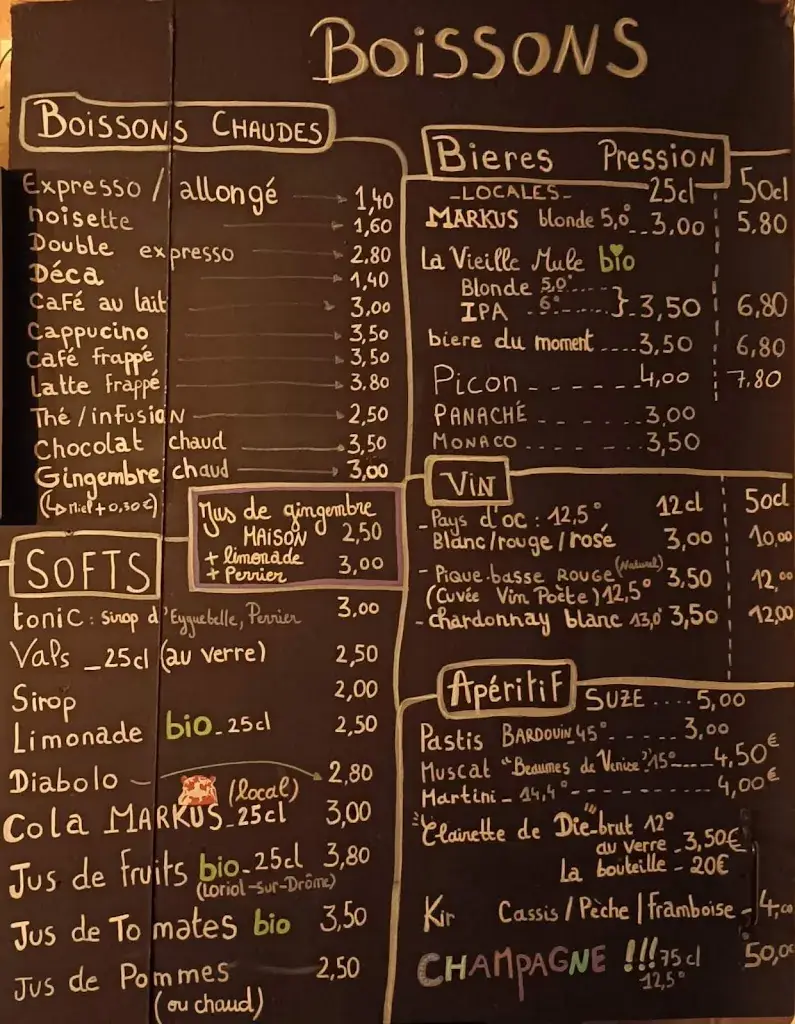 BOISSONS
BOISSONS CHAUDES
Expresso / allongé 1,40
noisette 1,60
Double expresso 2,80
Déca 1,40
Café au lait 3,00
Cappucino 3,50
Café frappé 3,50
Latte frappé 3,80
Thé / infusion 2,50
Chocolat chaud 3,50
Gingembre chaud 3,00
(↳ miel + 0,30€)
Jus de gingembre
MAISON 2,50
+ limonade 3,00
+ Perrier
SOFTS
tonic : sirop d'Eyguebelle, Perrier 3,00
Vals _ 25cl (au verre) 2,50
Sirop 2,00
Limonade bio - 25cl 2,50
Diabolo 2,80
(local)
Cola MARKUS - 25cl 3,00
Jus de fruits bio - 25cl 3,80
(Loriol-sur-Drôme)
Jus de Tomates bio 3,50
Jus de Pommes 2,50
(ou chaud)
Bieres Pression
-LOCALES- 25cl 50cl
MARKUS blonde 5,0° -- 3,00 5.80
La Vieille Mule bio
Blonde 5,0° ....
IPA - 6° ---- } - 3,50 6,80
biere du moment .... 3,50 6,80
Picon ------ 4,00 7.80
PANACHÉ ...... 3,00
MONACO ...... 3,50
VIN
12cl 50cl
- Pays d'oc : 12,5°
Blanc/rouge/rosé 3,00 10,00
- Pique-basse ROUGE (Naturel) 3,50 12,00
(Cuvée Vin Poète) 12,5°
- chardonnay blanc 13,0° 3,50 12,00
Apéritif
SUZE .... 5,00
Pastis BARDOUIN 45° ------ 3,00
Muscat "Beaumes de Venise" 15° ---- 4,50€
Martini - 14,4° --------- 4,00€
"Clairette de Die" brut 12°
au verre - 3,50€
La bouteille - 20€
Kir Cassis / Pèche | framboise - 4,00
CHAMPAGNE !!! 75cl 50,00
12,5°